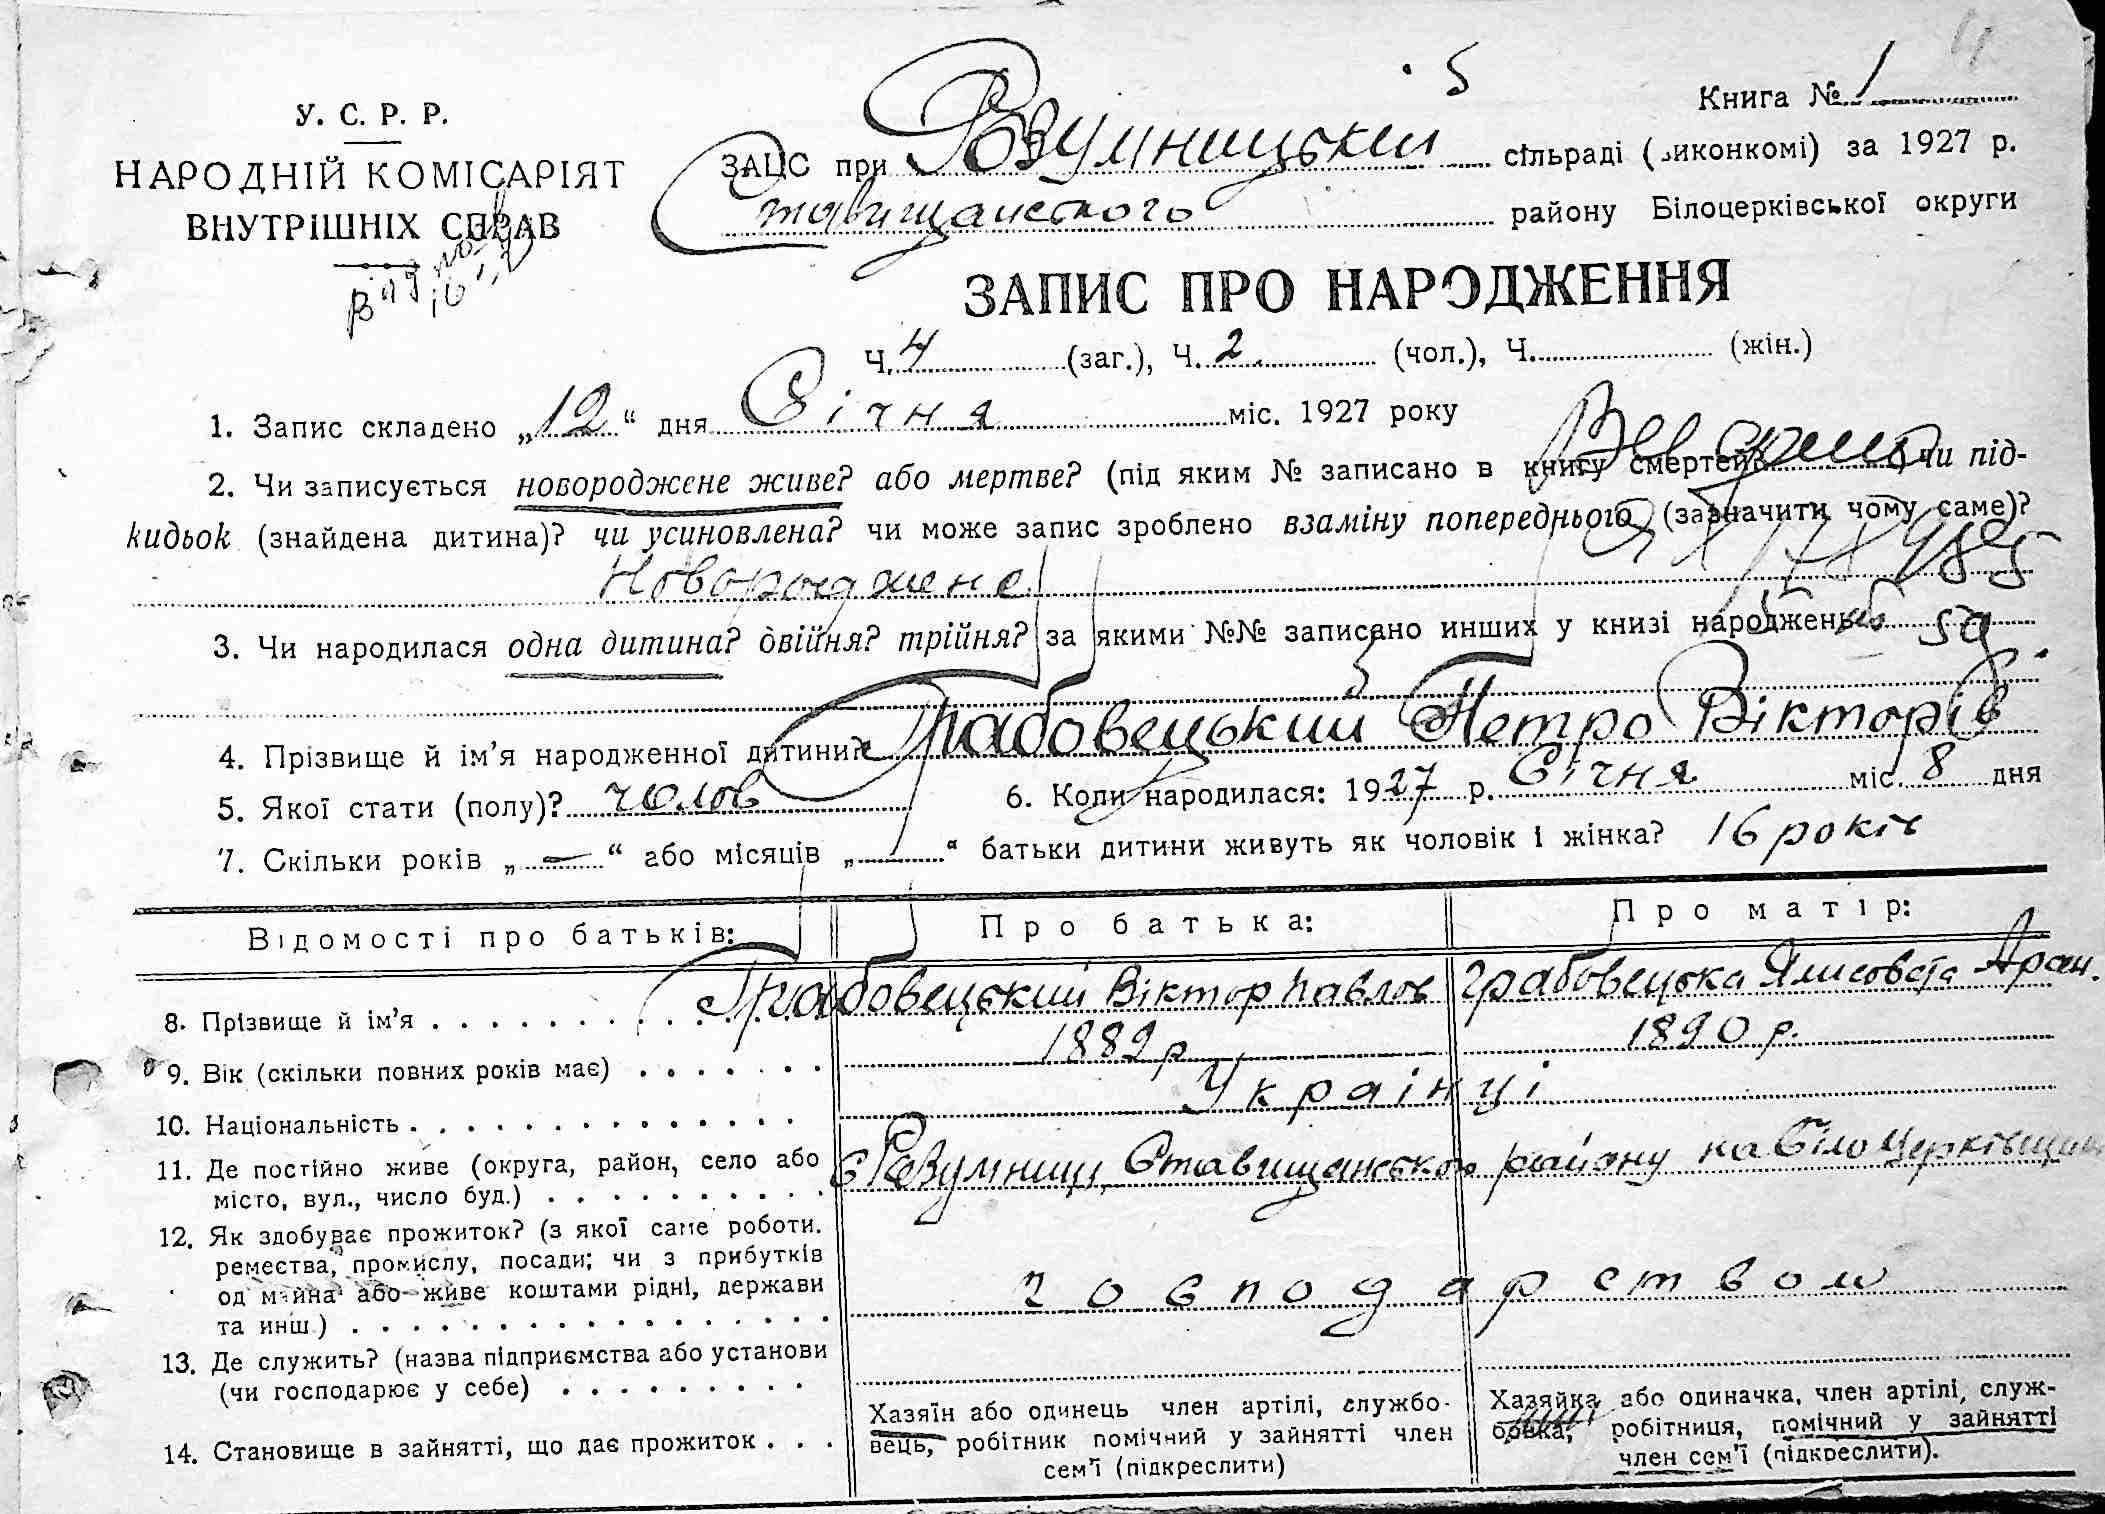 Книга № 1
У. С. Р. Р.
НАРОДНІЙ КОМІСАРІЯТ
ВНУТРІШНІХ СПРАВ
ЗАЦС при Розумницькій сільраді (виконкомі) за 1927 р.
Ставищанського району Білоцерківської округи
ЗАПИС ПРО НАРОДЖЕННЯ
Ч. 4 (заг.), Ч. 2 (чол.), Ч. (жін.)
1. Запис складено „12“ дня Січня міс. 1927 року
2. Чи записується новороджене живе? або мертве? (під яким № записано в книгу смертей) чи під-
кидьок (знайдена дитина)? чи усиновлена? чи може запис зроблено взаміну попереднього (зазначити чому саме)?
Новороджене
3. Чи народилася одна дитина? двійня? трійня? за якими №№ записано инших у книзі народжень
4. Прізвище й ім’я народженної дитини Грабовецький Петро Вікторів
5. Якої стати (полу)? чолов 6. Коли народилася: 1927 р. Січня міс. 8 дня
7. Скільки років „—“ або місяців „ “ батьки дитини живуть як чоловік і жінка? 16 років
Відомості про батьків: Про батька: Про матір:
8. Прізвище й ім’я Грабовецький Віктор Павлов Грабовецька Ялисовета
9. Вік (скільки повних років має) 1889 р 1890 р.
10. Національність Українці
11. Де постійно живе (округа, район, село або
місто, вул., число буд.) с Розумниці, Ставищанського району на Білоцерківщині
12. Як здобуває прожиток? (з якої саме роботи.
ремества, промислу, посади; чи з прибутків
од майна або живе коштами рідні, держави
та инш.) господарством
13. Де служить? (назва підприємства або установи
(чи господарює у себе)
14. Становище в зайнятті, що дає прожиток
Хазяїн або одинець член артілі, службо-
вець, робітник помічний у зайнятті член
сем’ї (підкреслити)
Хазяйка або одиначка, член артілі, служ-
бовка, робітниця, помічний у зайнятті
член сем’ї (підкреслити).